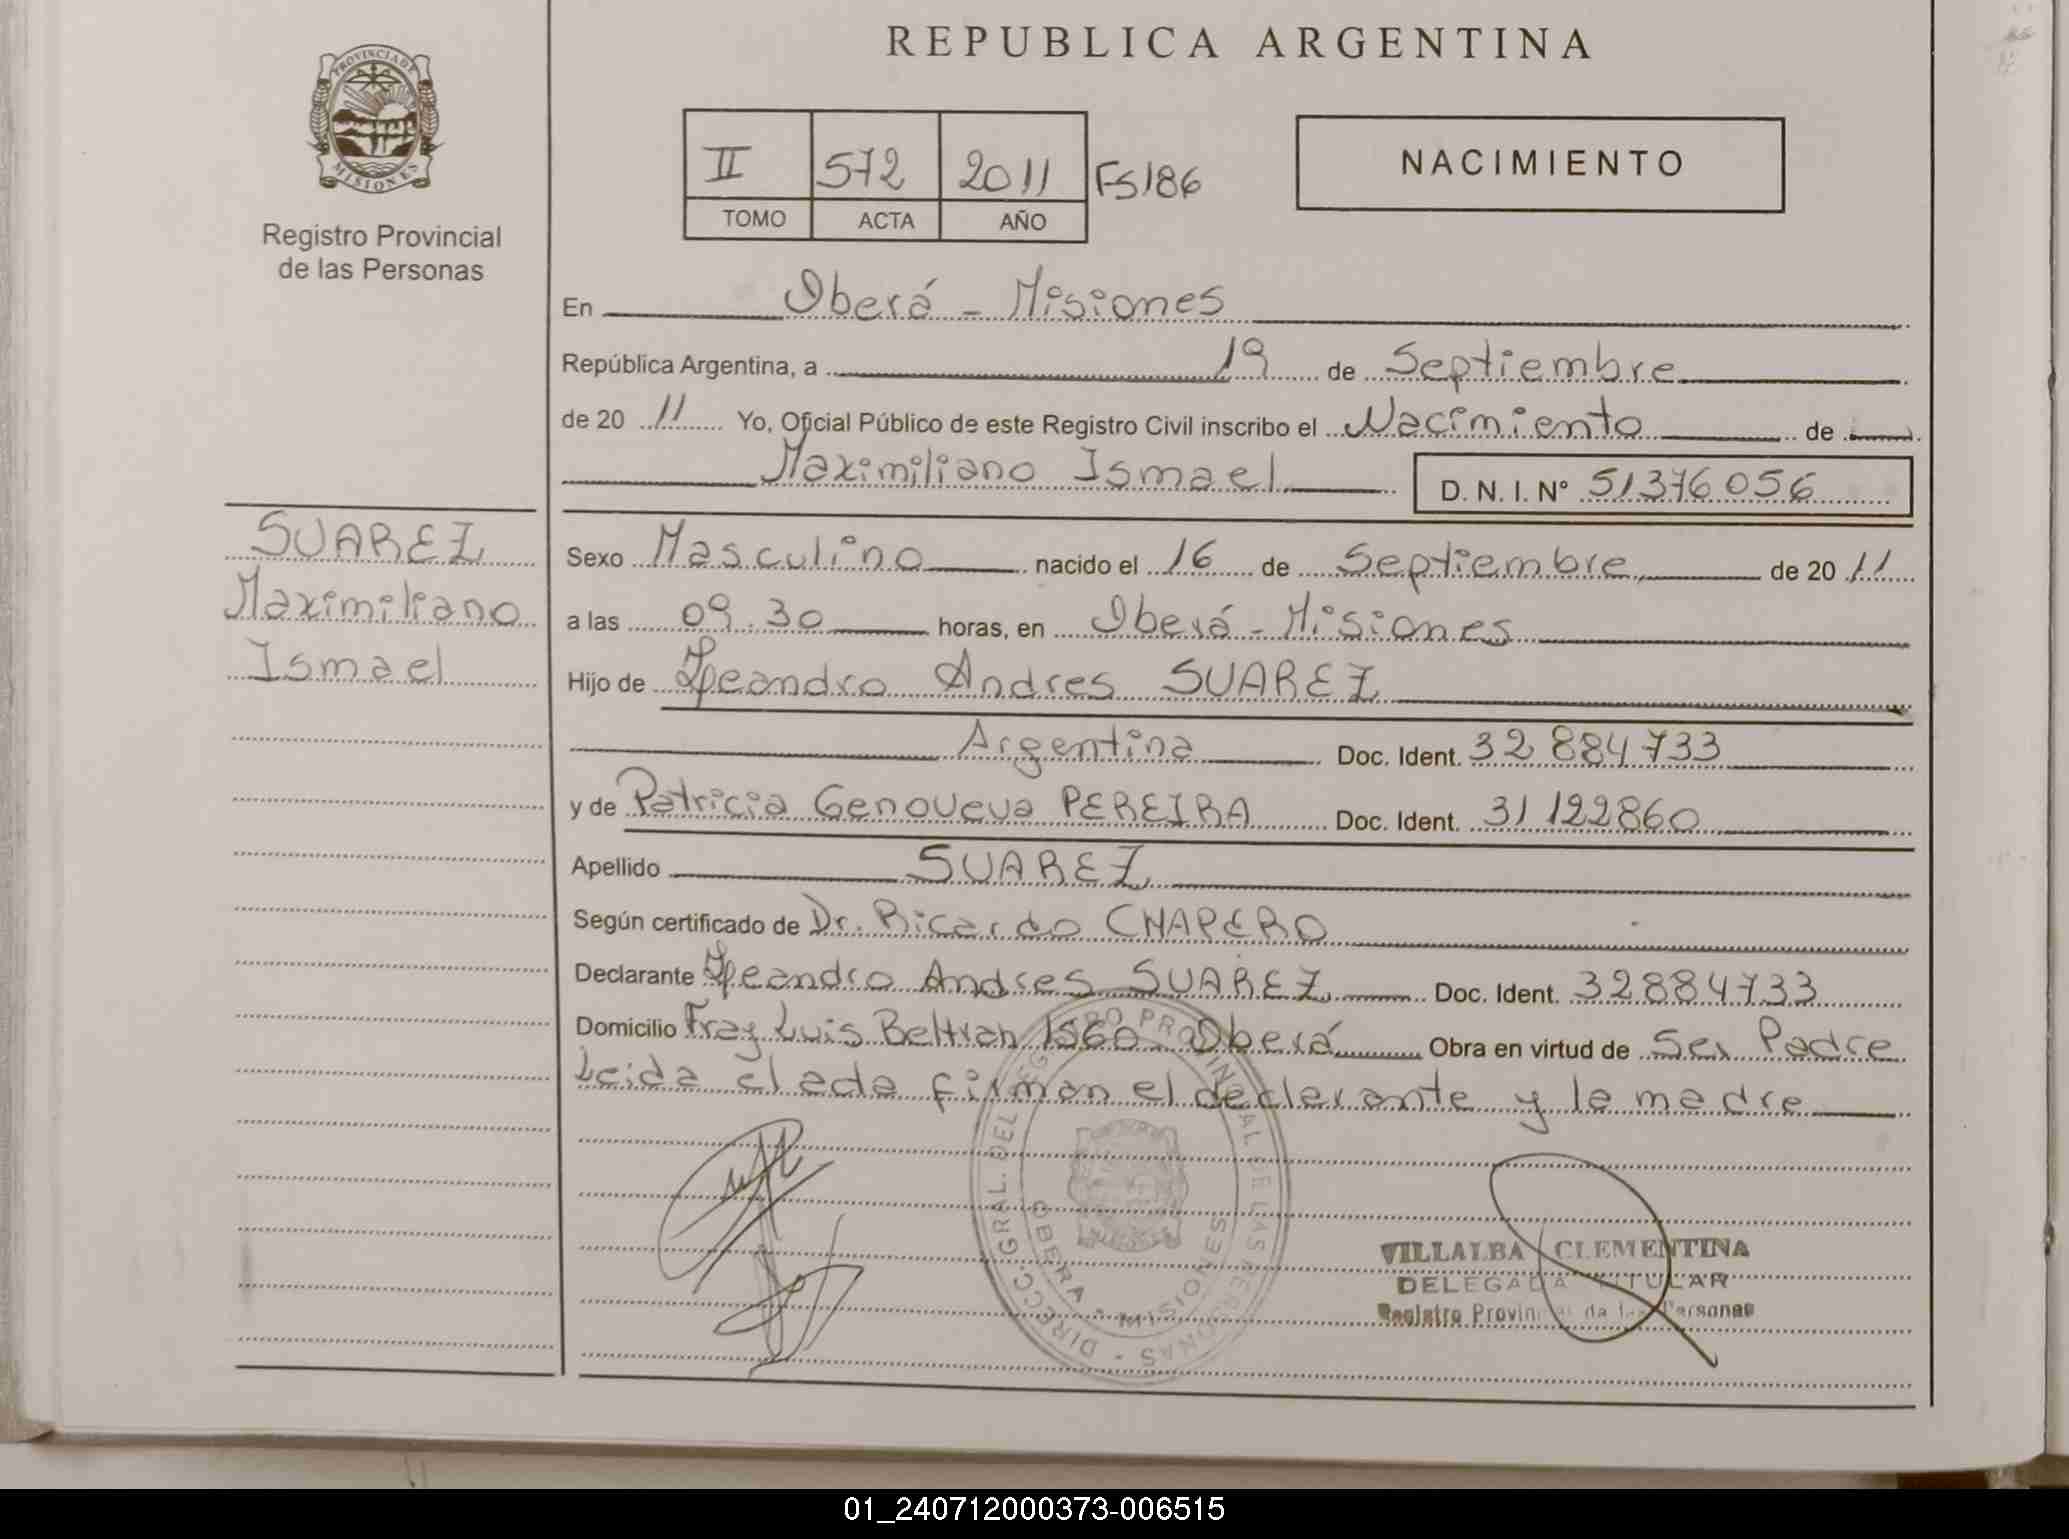 REPUBLICA ARGENTINA
PROVINCIA DE
MISIONES
Registro Provincial
de las Personas
II 572 2011 Fs186
TOMO ACTA AÑO
NACIMIENTO
En Oberá - Misiones
República Argentina, a 19 de Septiembre
de 20 11 Yo, Oficial Público de este Registro Civil inscribo el Nacimiento de
Maximiliano Ismael D. N. I. Nº 51376056
SUAREZ
Maximiliano
Ismael
Sexo Masculino nacido el 16 de Septiembre de 20 11
a las 09.30 horas, en Oberá - Misiones
Hijo de Leandro Andres SUAREZ
Argentina Doc. Ident. 32 884733
y de Patricia Genoveva PEREIRA Doc. Ident. 31 122860
Apellido SUAREZ
Según certificado de Dr. Ricardo CHAPERO
Declarante Leandro Andres SUAREZ Doc. Ident. 32884733
Domicilio Fray Luis Beltran 1560 Oberá Obra en virtud de Ser Padre
Leida el acta firman el declarante y la madre
DIRECC. GRAL. DEL REGISTRO PROVINCIAL DE LAS PERSONAS
OBERA - MISIONES
VILLALBA CLEMENTINA
DELEGADA TITULAR
Registro Provincial de las Personas
01_240712000373-006515